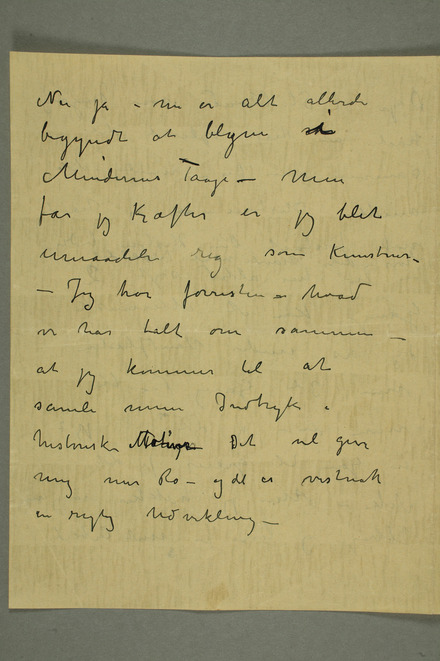 Nu ja – nu er alt allerede
begyndt at blegne i
Mindernes Taage – Men
får jeg Kræfter er jeg blet
umaadelig rig som Kunstner –
– Jeg tror forresten – hvad
vi har talt om sammen –
at jeg kommer til at
samle mine Indtryk i
historiske Motiver Det vil give
mig mer Ro – og det er vistnok
en rigtig Udvikling –